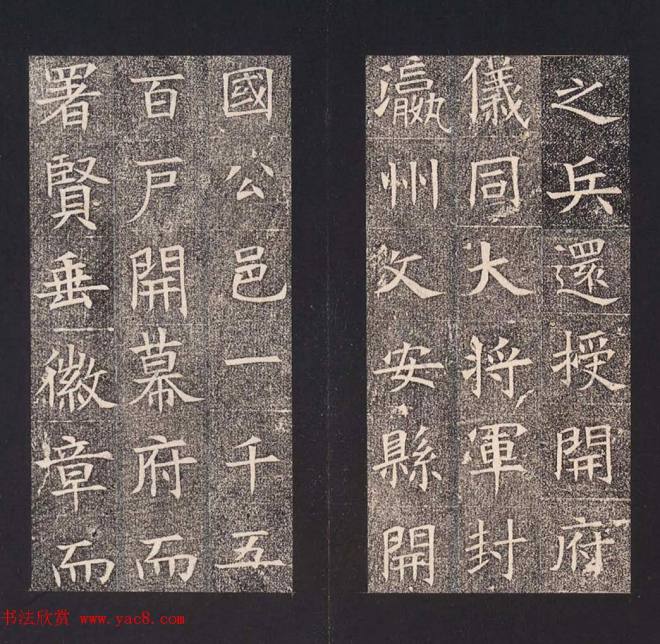 之兵還授開府
儀同大将軍封
瀛州文安縣開
國公邑一千五
百戸開幕府而
署賢垂徽章而
书法欣赏 www.yac8.com